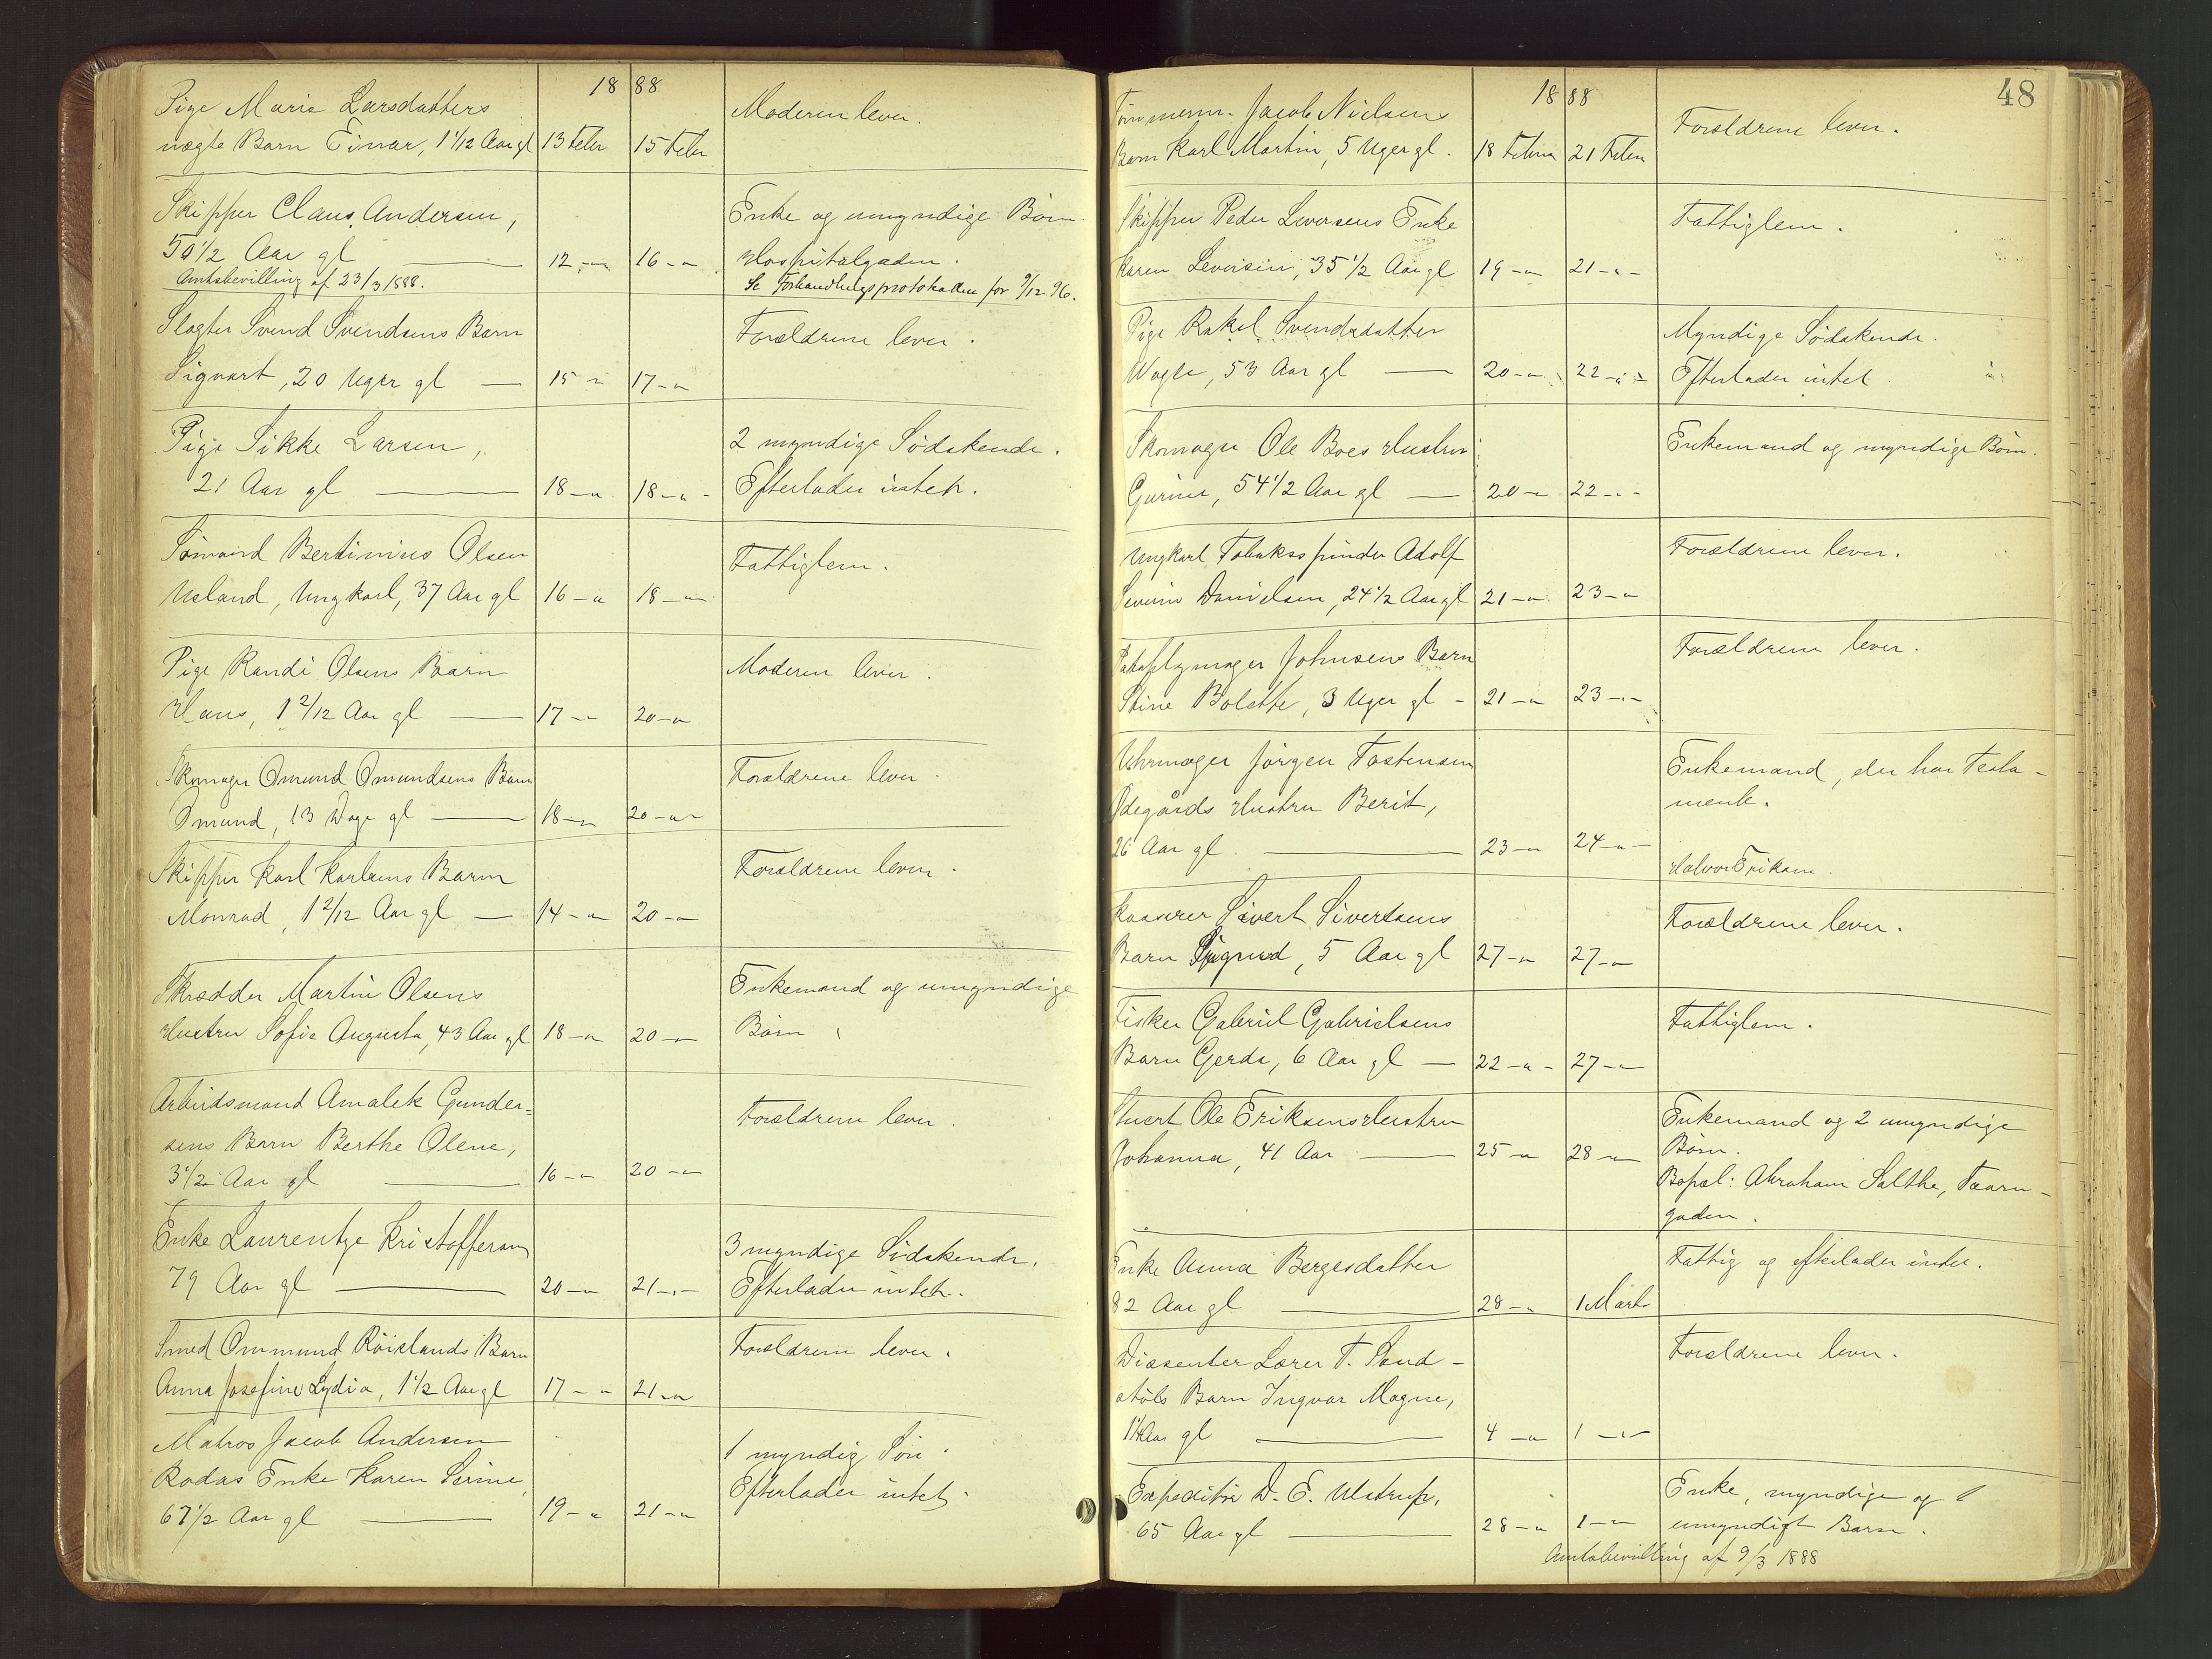 18 88
Pige Marie Larsdatters
uægte Barn Einar, 1 1/12 Aar gl 13 Febr 15 Febr Moderen lever.
Skipper Claus Andersen, Enke og umyndige Børn.
50 1/2 Aar gl — 12 - " 16 - " Hospitalgaden.
Amtsbevilling af 23/3 1888. Se Forhandlingsprotokollen for 9/12 96.
Slagter Svend Svendsens Barn Forældrene lever.
Sigvart, 20 Uger gl — 15 - " 17 - "
Pige Sikke Larsen, 2 myndige Sødskende.
21 Aar gl — 18 - " 18 - " Efterlader intet.
Sømand Bertinius Olsen Fattiglem.
Usland, Ungkarl, 37 Aar gl 16 - " 18 - "
Pige Randi Olsens Barn Moderen lever.
Hans, 1 2/12 Aar gl — 17 - " 20 - "
Skomager Omund Omundsens Barn Forældrene lever.
Omund, 13 Dage gl — 18 - " 20 - "
Skipper Karl Karlsens Barn Forældrene lever.
Monrad, 1 2/12 Aar gl — 14 - " 20 - "
Skrædder Martin Olsens Enkemand og umyndige
Hustru Sofie Augusta, 43 Aar gl 18 - " 20 - " Børn
Arbeidsmand Amalek Gunder-
sens Barn Berthe Olene, Forældrene lever.
3 1/2 Aar gl — 16 - " 20 - "
Enke Laurentze Kristoffersen 3 myndige Sødskende.
79 Aar gl — 20 - " 21 - " Efterlader intet.
Smed Ommund Röislands Barn Forældrene lever.
Anna Josefine Lydia, 1 1/2 Aar gl 17 - " 21 - "
Matros Jacob Andersen 1 myndig Søn.
Rodas Enke Karen Serine, Efterlader intet.
67 1/2 Aar gl — 19 - " 21 - "
48
18 88
Tømmerm. Jacob Nielsens Forældrene lever.
Barn Karl Martin, 5 Uger gl. 18 Februar 21 Febr
Skipper Peder Leversens Enke Fattiglem.
Karen Leversen, 35 1/2 Aar gl 19 - " 21 - "
Pige Rakel Svendsdatter Myndige Sødskende.
Wagle, 53 Aar gl — 20 - " 22 - " Efterlader intet.
Skomager Ole Boes Hustru Enkemand og myndige Børn.
Gurine, 54 1/2 Aar gl — 20 - " 22 - "
Ungkarl Tobaksspinder Adolf Forældrene lever.
Severin Danielsen, 24 1/2 Aar gl 21 - " 23 - "
Johnsens Barn Forældrene lever.
Stine Bolette, 3 Uger gl - 21 - " 23 - "
Uhrmager Jørgen Tostensen Enkemand, der har Testa-
Ødegårds Hustru Berit, mente.
26 Aar gl. — 23 - " 24 - " Halvor Eriksen.
Kasserer Sivert Sivertsens Forældrene lever.
Barn Sigrud, 5 Aar gl 27 - " 27 - "
Fisker Gabriel Gabrielsens Fattiglem.
Barn Gerda, 6 Aar gl — 22 - " 27 - "
Stuert Ole Eriksens Hustru Enkemand og 2 umyndige
Johanna, 41 Aar — 25 - " 28 - " Børn.
Bopæl: Abraham Salthe, Taarn-
gaden.
Enke Anna Bergesdatter Fattig og efterlader intet.
82 Aar gl — 28 - " 1 Marts
Dissenter Lærer T. Sand- Forældrene lever.
stöls Barn Ingvar Magne,
1 1/4 Aar gl — 4 - " 1 - "
Expeditør D. E. Ulstrup, Enke, myndige og 1
65 Aar gl — 28 - " 1 - " umyndigt Barn.
Amtsbevilling af 9/3 1888